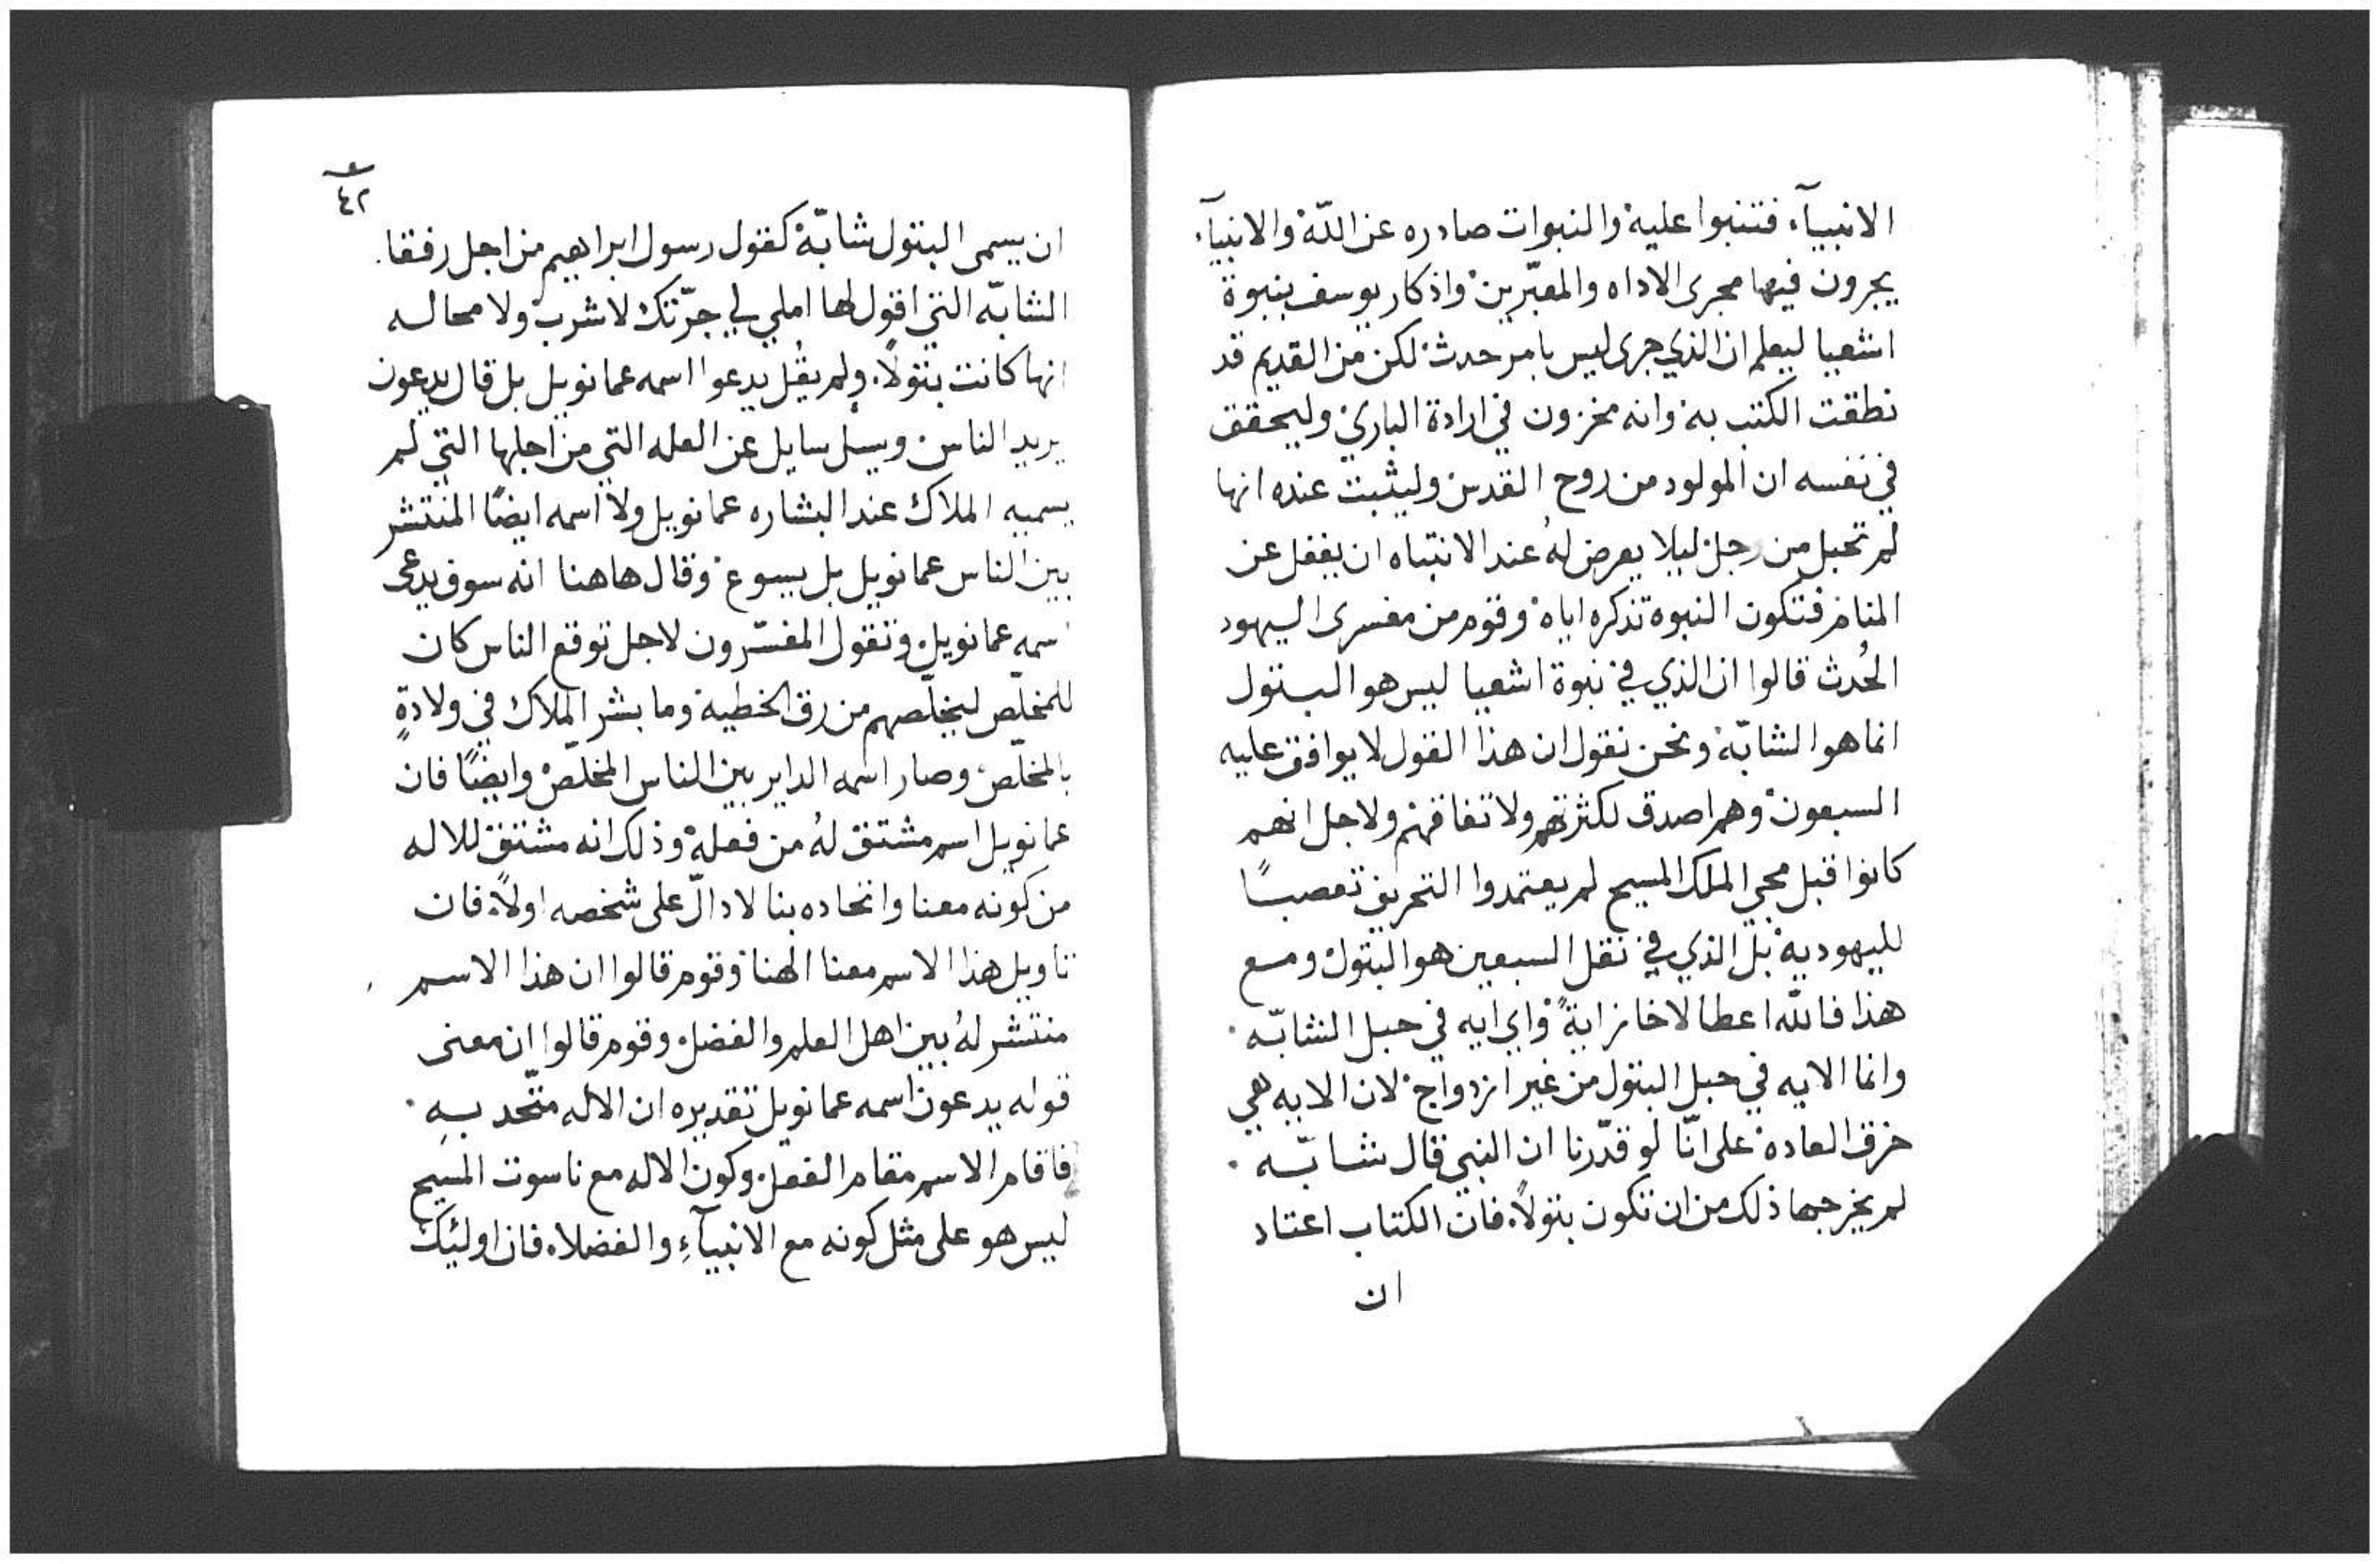 الانبيآء فتنبوا عليه والنبوات صادره عن اللّه والانبيآء
يجرون فيها مجرى الاداه والمعبّرين واذكار يوسف بنبوة
اشعيا ليعلم ان الذي جرى ليس بامر حدث لكن من القديم قد
نطقت الكتب به وانه مخزون في ارادة الباري وليحقق
في نفسه ان المولود من روح القدس وليثبت عنده انها
لم تحبل من رجل ليلا يعرض لهُ عند الانتباه ان يغفل عن
المنام فتكون النبوه تذكره اياه وقوم من مفسرى اليهود
الحُدث قالوا ان الذي في نبوة اشعيا ليس هو البتول
انما هو الشابّة ونحن نقول ان هذا القول لا يوافق عليه
السبعون وهم اصدق لكثرتهم ولاتفاقهم ولاجل انهم
كانوا قبل مجي الملك المسيح لم يعتمدوا التحريف تعصبًا
لليهودية بل الذي في نقل السبعين هو البتول ومع
هذا فالله اعطا لاخاز ايةً واي ايه في حبل الشابّه
وانما الايه في حبل البتول من غير ازدواج لان الايه هي
خرق العاده على انّا لو قدّرنا ان النبي قال شابّه
لم يخرجها ذلك من ان تكون بتولاً فان الكتاب اعتاد
ان
٤٢
ان يسمى البتول شابّة كقول رسول ابراهيم من اجل رفقا
الشابّه التي اقول لها املي لي جرّتك لاشرب ولا محاله
انها كانت بتولاً ولم يقُل يدعوا اسمه عمانويل بل قال يدعون
يريد الناس ويسل سايل عن العله التي من اجلها التي لم
يسميه الملاك عند البشاره عمانويل ولا اسمه ايضًا المنتشر
بين الناس عمانويل بل يسوع وقال هاهنا انه سوف يدعى
اسمه عمانويل وتقول المفسّرون لاجل توقع الناس كان
للمخلّص ليخلّصهم من رق الخطية وما بشر الملاك في ولادةٍ
بالمخلّص وصار اسمه الداير بين الناس المخلّص وايضًا فان
عمانويل اسم مشتق لهُ من فعله وذلك انه مشتق للاله
من كونه معنا واتحاده بنا لا دالّ على شخصه اولاً فان
تاويل هذا الاسم معنا الهنا وقوم قالوا ان هذا الاسم
منتشر لهُ بين اهل العلم والفضل وقوم قالوا ان معنى
قوله يدعون اسمه عمانويل تقديره ان الاله متّحد بهِ
فاقام الاسم مقام الفعل وكون الاله مع ناسوت المسيح
ليس هو على مثل كونه مع الانبيآءِ والفضلاء فان اولئيك